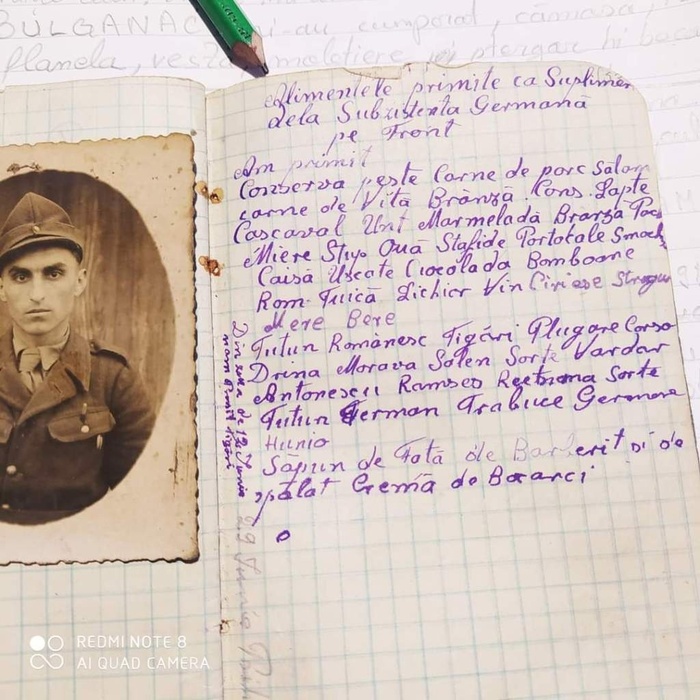 BULGANAC i-au cumparat, cămașa,
flanela, vestă, moletiere și ștergar
Alimentele primite ca Suplimen
dela Subzistenta Germană
pe Front
Am primit
Conserva pește Carne de porc Salam
carne de Vită Brânză Cons. Lapte
Cascaval Unt Marmeladă Branză
Miere Stup Ouă Stafide Portocale
Caisă Uscate Ciocolada Bomboane
Rom Țuică Lichior Vin Cirieșe Strugur
Mere Bere
Tutun Românesc Țigări Plugare Corso
Drina Morava Solen Sorte Vardar
Antonescu Ramses Sorte
Tutun German Trabuce Germane
Hunio
Săpun de Fată de Barberit și de
spălat Cremă de Bocanci
Din seara de 12 Iunie
nam primit țigări
29 Iunie
REDMI NOTE 8
AI QUAD CAMERA